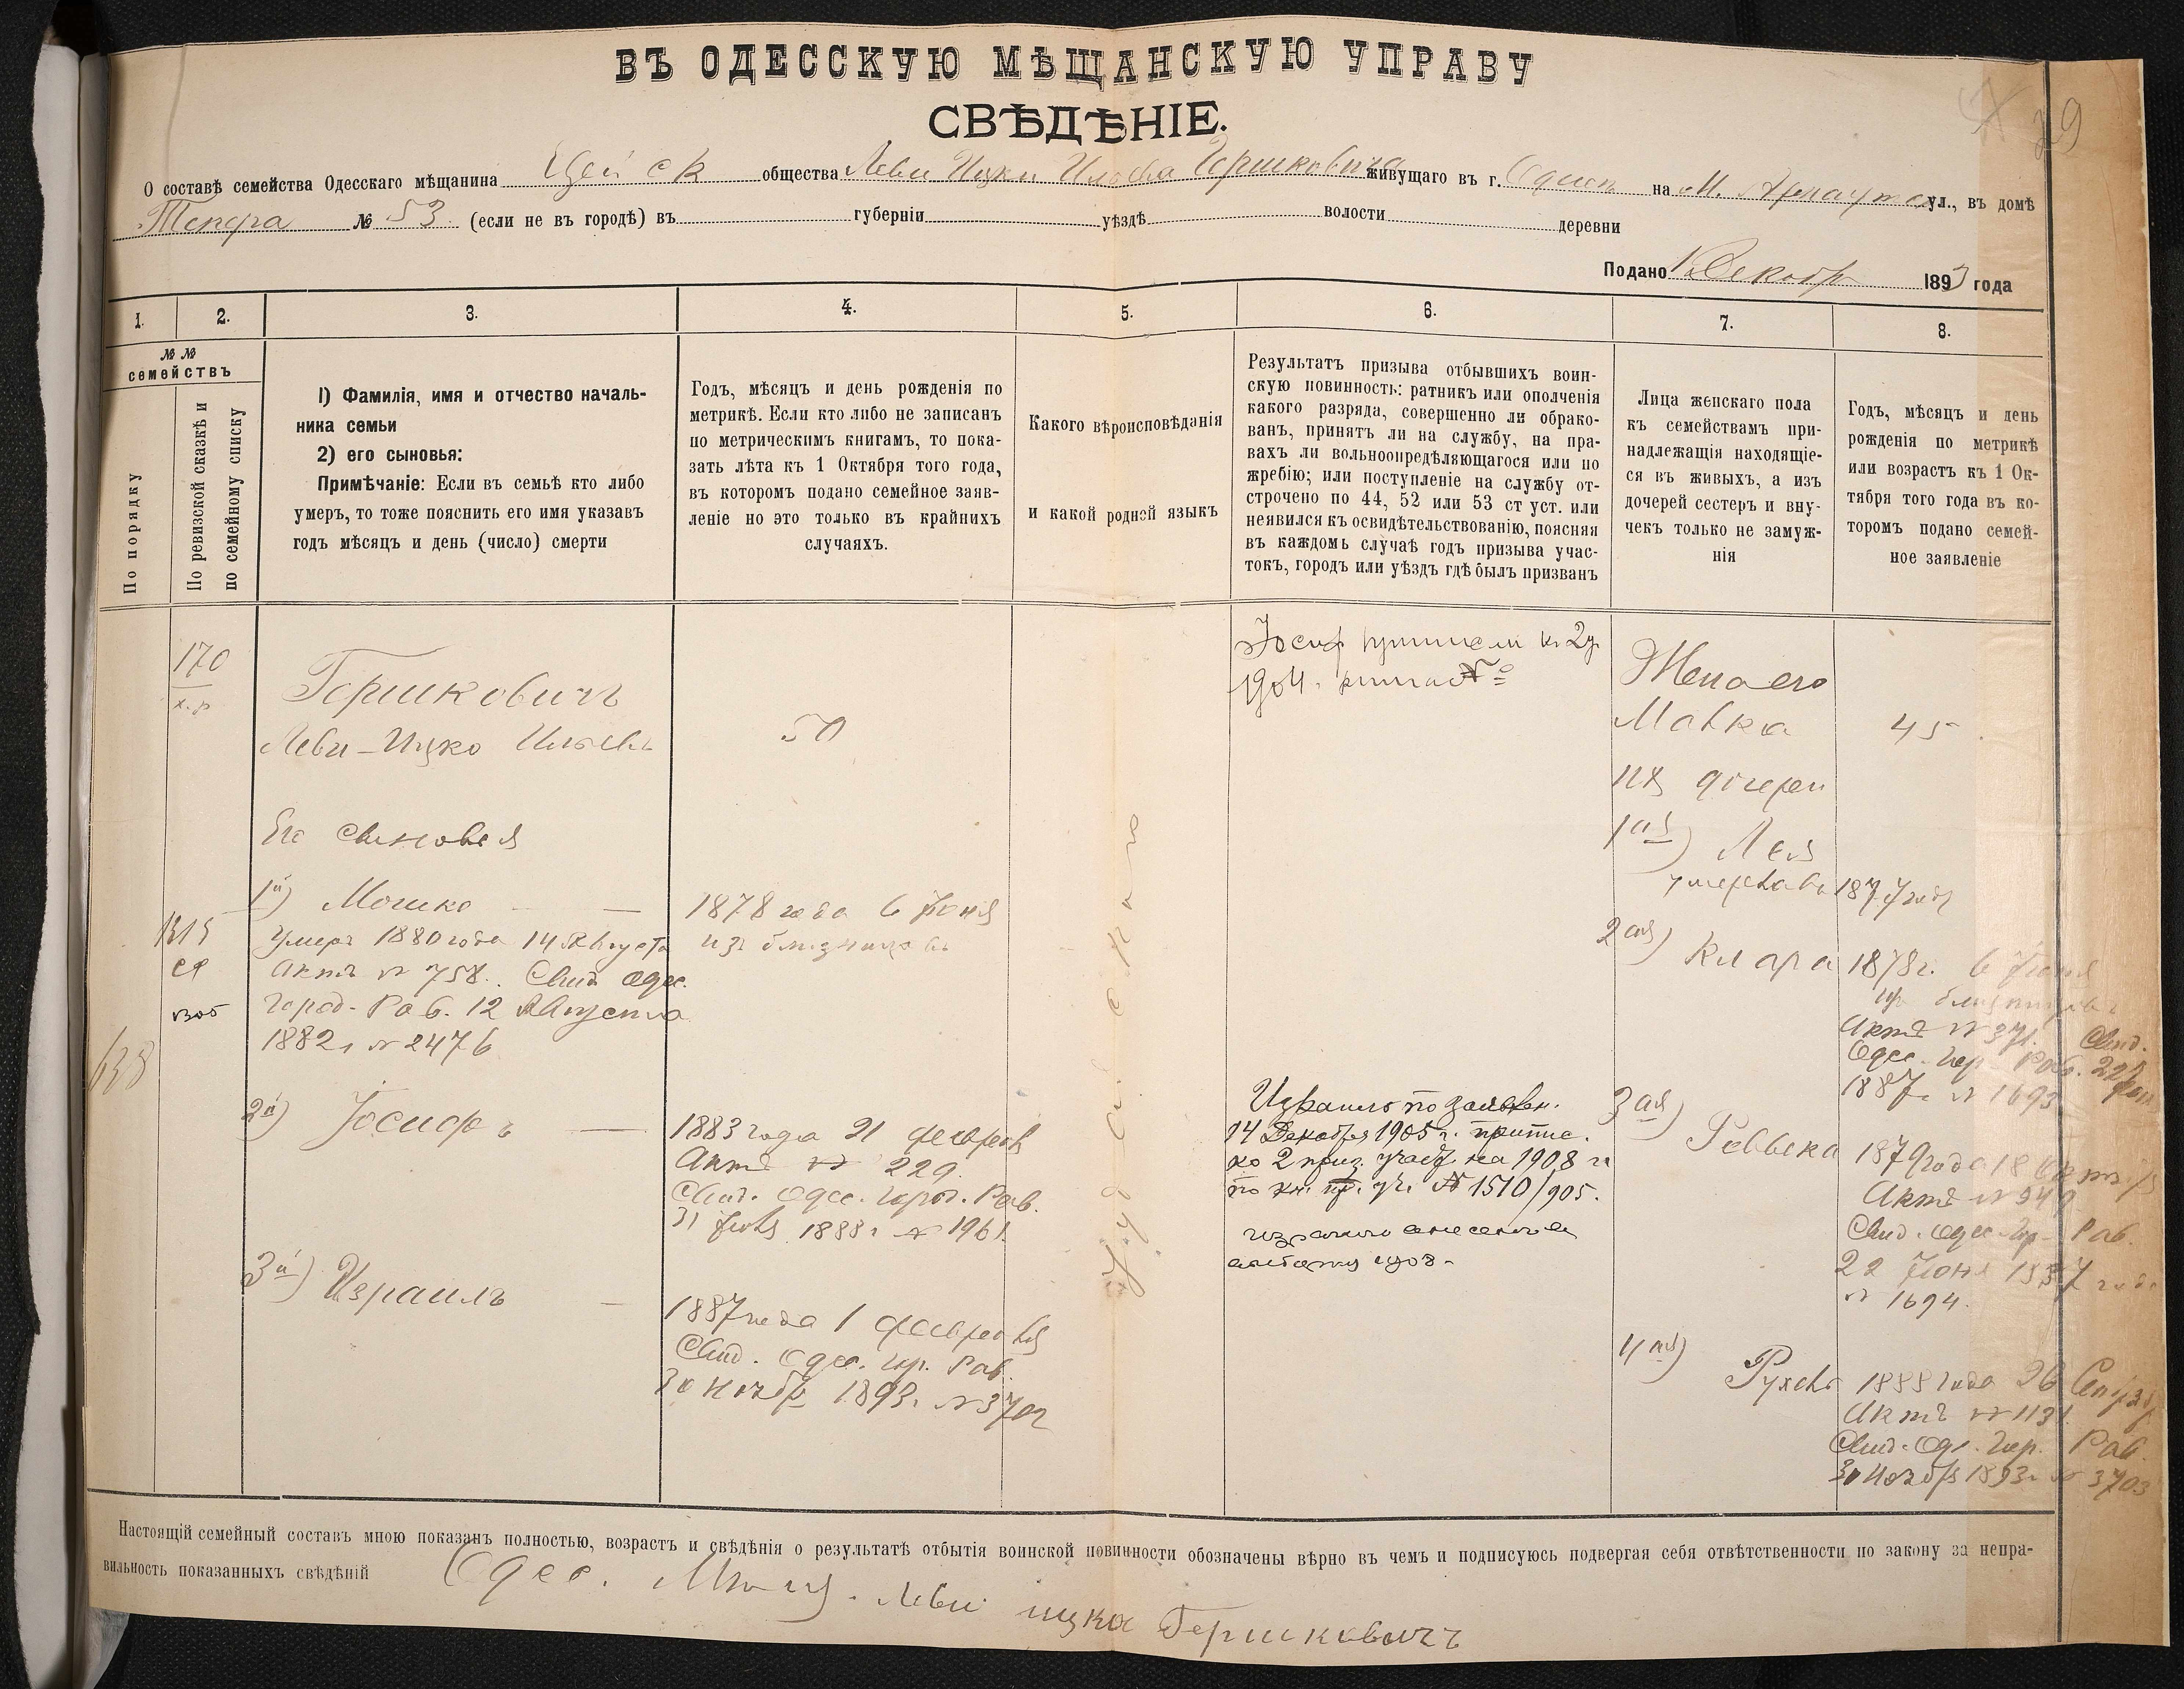 ВЪ ОДЕССКУЮ МѢЩАНСКУЮ УПРАВУ
СВѢДѢНІЕ.
29
О составѣ семейства Одесскаго мѣщанина общества Леви Ицки Гершковича живущаго въ г. Одессѣ на М. Арнаутск ул., въ домѣ
№ 53 (если не въ городѣ) въ губерніи уѣздѣ волости деревни
Подано 1 Декабр 1893 года
1. 2. 3. 4. 5. 6. 7. 8.
№№ семействъ
По порядку
По ревизской сказкѣ и по семейному списку
I) Фамилія, имя и отчество началь-
ника семьи
2) его сыновья:
Примѣчаніе: Если въ семьѣ кто либо
умеръ, то тоже пояснить его имя указавъ
годъ мѣсяцъ и день (число) смерти
Годъ, мѣсяцъ и день рожденія по
метрикѣ. Если кто либо не записанъ
по метрическимъ книгамъ, то пока-
зать лѣта къ 1 Октября того года,
въ которомъ подано семейное заяв-
леніе но это только въ крайнихъ
случаяхъ.
Какого вѣроисповѣданія
и какой родной языкъ
Результатъ призыва отбывшихъ воин-
скую повинность: ратникъ или ополченія
какого разряда, совершенно ли обрако-
ванъ, принятъ ли на службу, на пра-
вахъ ли вольноопредѣляющагося или по
жребію; или поступленіе на службу от-
строчено по 44, 52 или 53 ст уст. или
неявился къ освидѣтельствованію, поясняя
въ каждомъ случаѣ годъ призыва учас-
токъ, городъ или уѣздъ гдѣ былъ призванъ
Лица женскаго пола
къ семействамъ при-
надлежащія находящіе-
ся въ живыхъ, а изъ
дочерей сестеръ и вну-
чекъ только не замуж-
нія
Годъ, мѣсяцъ и день
рожденія по метрикѣ
или возрастъ къ 1 Ок-
тября того года въ ко-
торомъ подано семей-
ное заявленіе
170
Гершковичъ
Леви-Ицко
50
Его сыновья
1й) Мошко
Умеръ 1880 года 14 Августа
Актъ № 758. Свид. Одес.
Город. Раб. 12 Августа
1882 г № 2476
1878 года 6 Іюня
изъ близнецовъ
638
2й) Іосифъ
1883 года 21 февраля
Актъ № 229
Свид. Одес. Город. Раб.
1888 г № 1961
3й) Израиль
1887 года 1 февраля
Свид. Одес. Гор. Раб.
30 Ноябр 1893 г № 3702
Іудейскаго
Іосиф к 2 у
1904.
Израиль по заявлен.
14 Декабря 1905 г. припис.
ко 2 приз. участ на 1908 г
по кн. пр. уч. № 1510/905.
1908.
Жена его
Малка 45
ихъ дочери
1ая) Лея
умерла въ 1877 году
2ая) Клара 1878 г. 6 Іюня
изъ близнецовъ
Актъ № 371. Свид.
Одес. Гор. Раб. 22
1887 г № 1693
3ая) Реввека 1879 года 18
Актъ № 949
Свид. Одес. Гор. Раб.
22 Іюня 1887 года
№ 1694.
4ая) Рухель 1888 года 26 Сентябр
Актъ № 1131
Свид. Одес. Гор. Раб.
30 Ноября 1893 г № 3703
Настоящій семейный составъ мною показанъ полностью, возрастъ и свѣдѣнія о результатѣ отбытія воинской повинности обозначены вѣрно въ чемъ и подписуюсь подвергая себя отвѣтственности по закону за непра-
вильность показанныхъ свѣдѣній Одес. Мѣщ. Леви ицко Гершковичъ